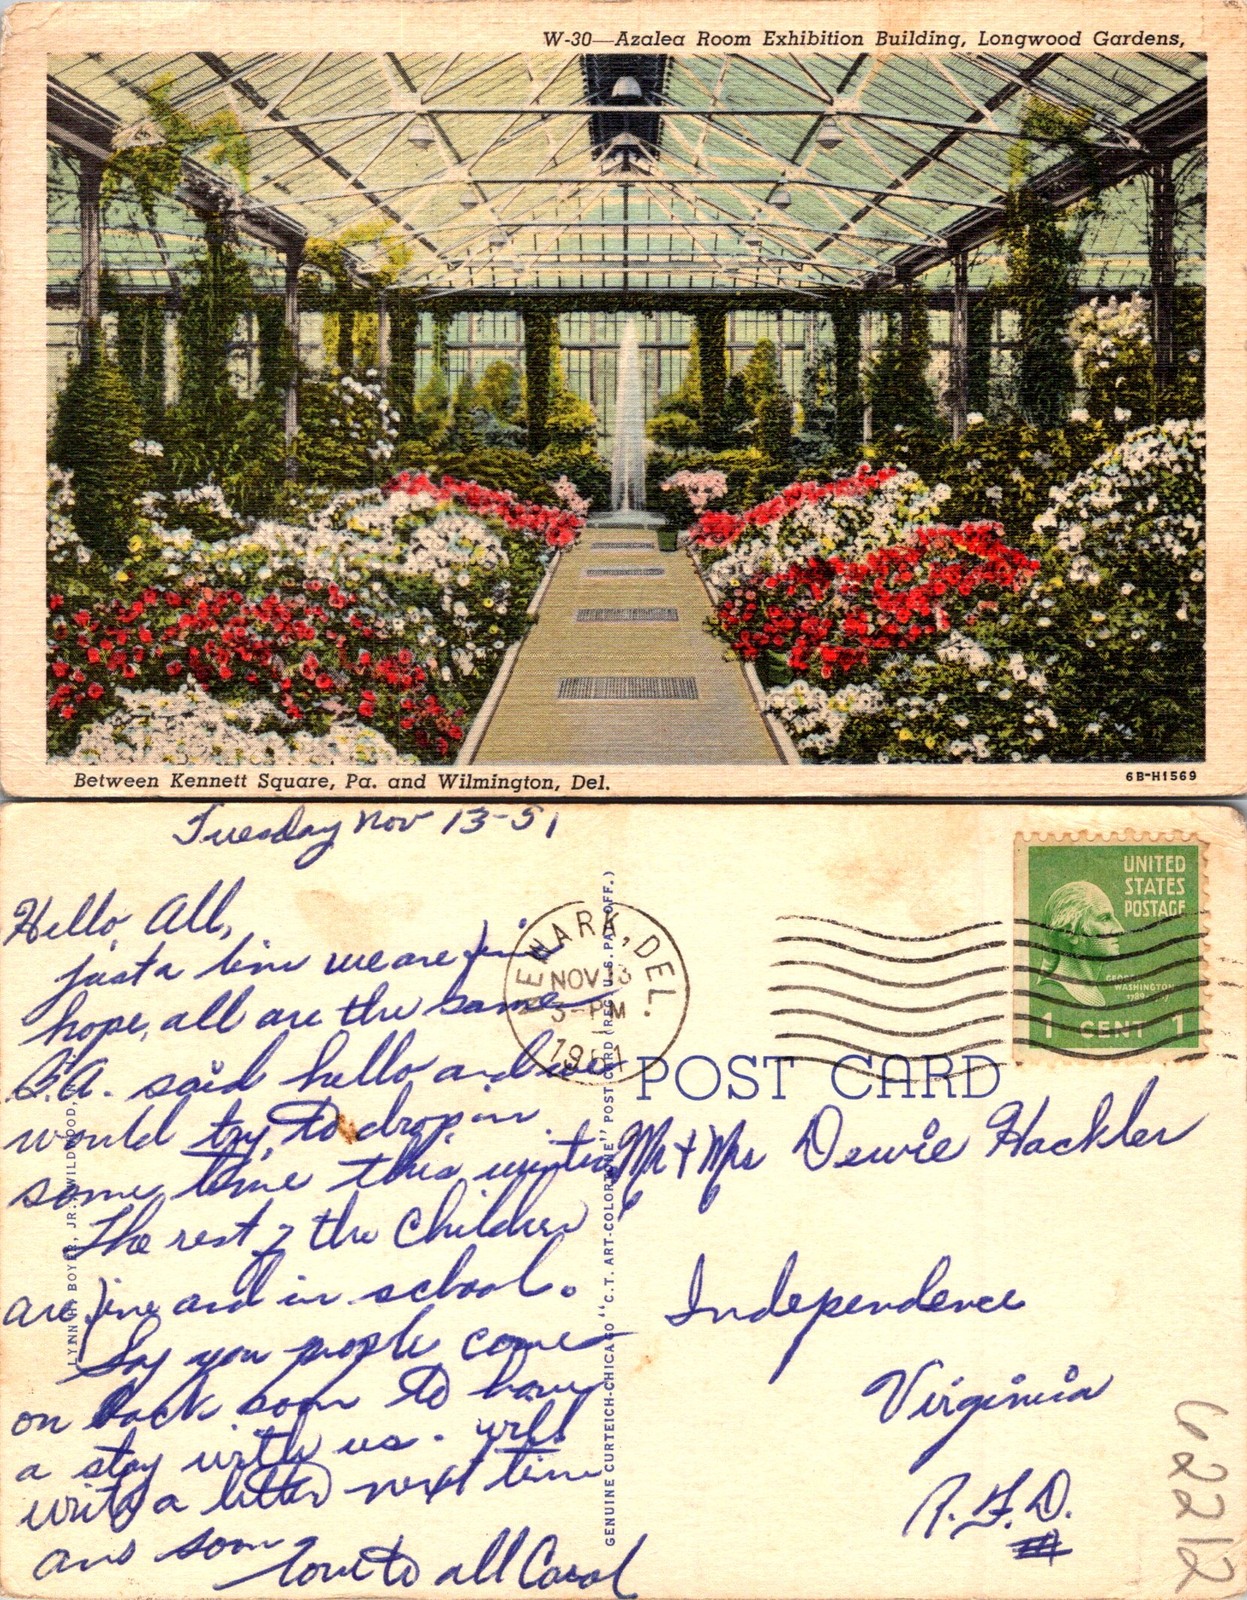 W-30—Azalea Room Exhibition Building, Longwood Gardens,
Between Kennett Square, Pa. and Wilmington, Del.
6B-H1569
Tuesday Nov 13-51
Hello All,
just a line we are fine
hope, all are the same
B.A. said hello and we
would try, to drop in
some time this winter
The rest of the Children
are fine and in school.
Say you people come
on back soon to have
a stay with us. will
write a letter next time
and soon
love to all Carol
NEWARK, DEL.
NOV 13
5-PM
1951
UNITED
STATES
POSTAGE
GEORGE
WASHINGTON
1789-1797
1 CENT 1
POST CARD
Mr & Mrs Dewie Hackler
Independence
Virginia
R.F.D.
LYNN H. BOYER, JR., WILDWOOD,
GENUINE CURTEICH-CHICAGO "C.T. ART-COLORTONE" POST CARD (REG. U.S. PAT. OFF.)
62212